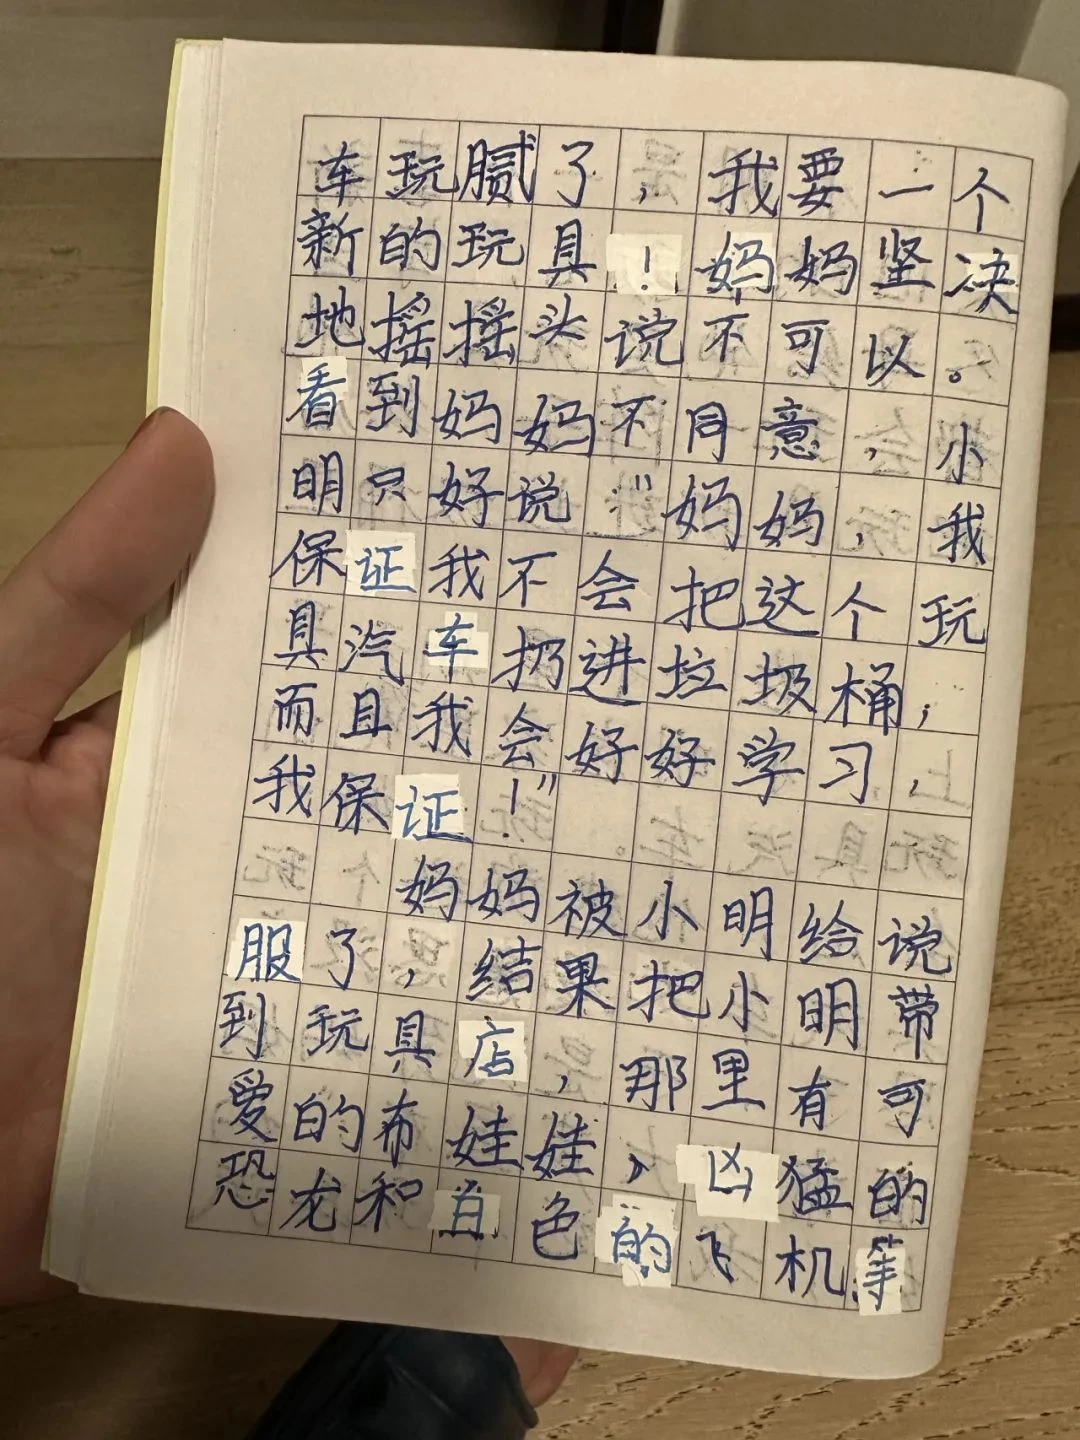 车玩腻了，我要一个
新的玩具！妈妈坚决
地摇摇头说不可以。
看到妈妈不同意，小
明只好说：“妈妈，我
保证我不会把这个玩
具汽车扔进垃圾桶，
而且我会好好学习，
我保证！”
妈妈被小明给说
服了，结果把小明带
到玩具店，那里有可
爱的布娃娃，凶猛的
恐龙和白色的飞机等